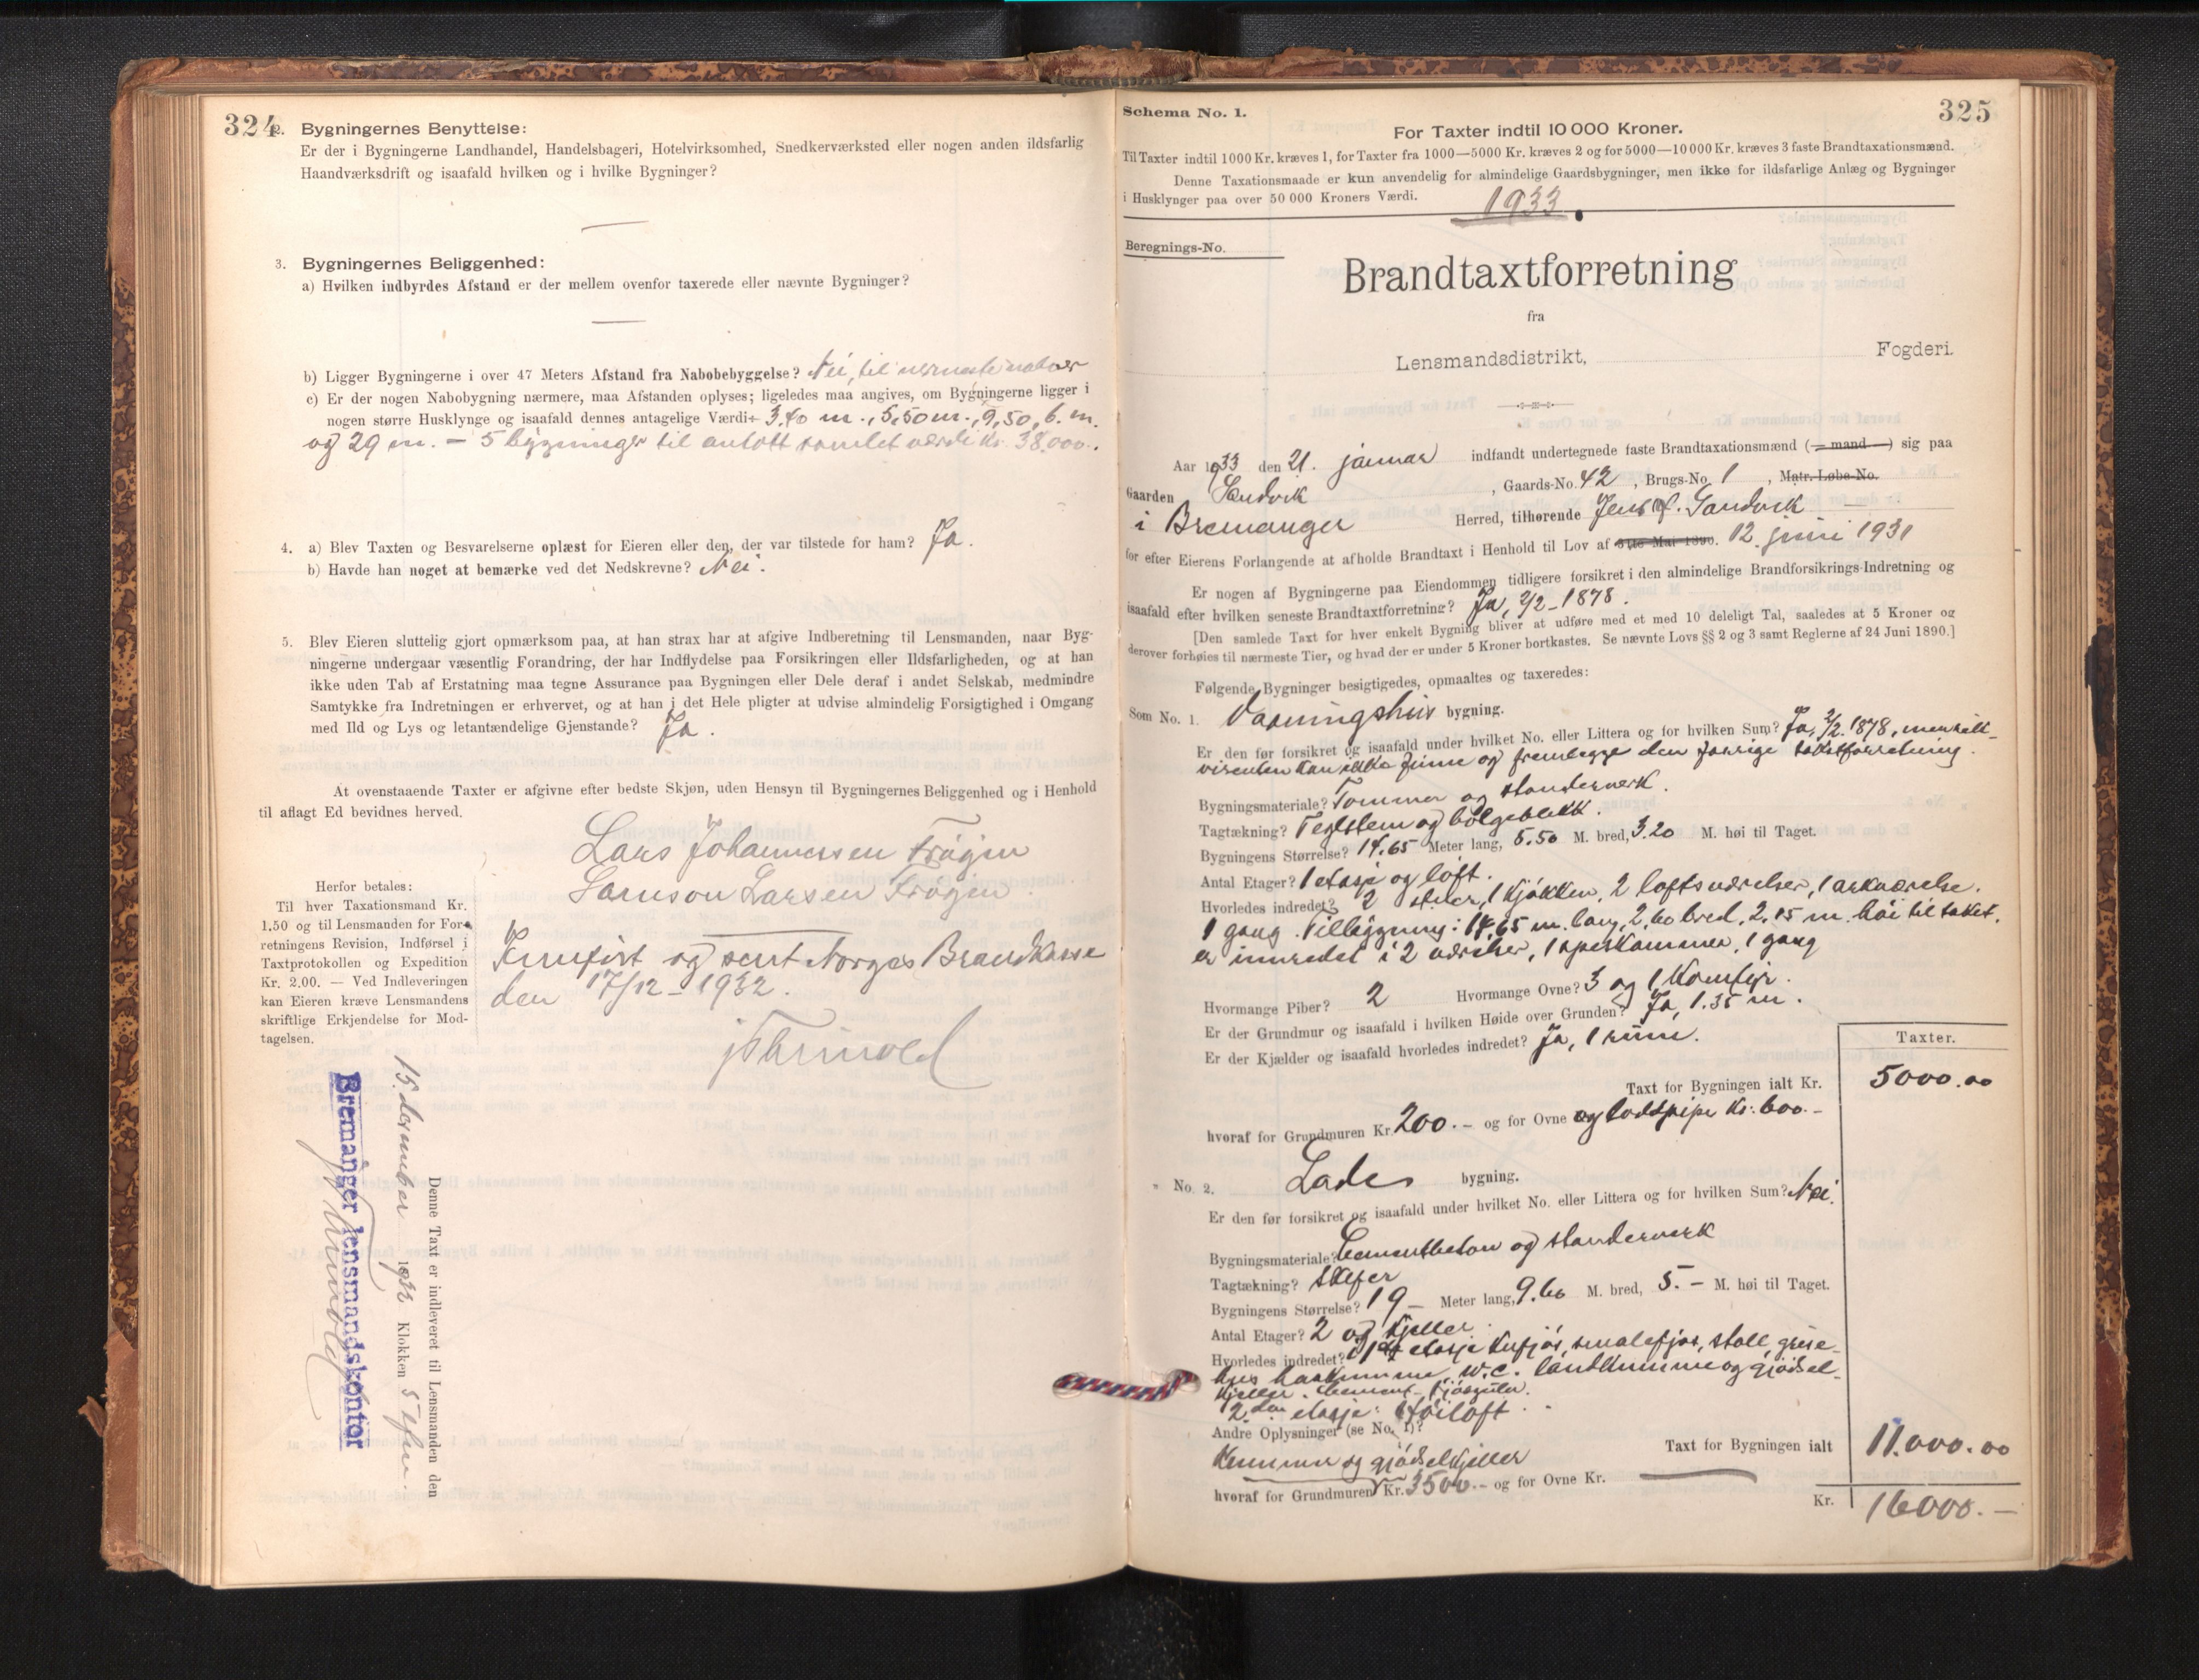 324
2. Bygningernes Benyttelse:
Er der i Bygningerne Landhandel, Handelsbageri, Hotelvirksomhed, Snedkerværksted eller nogen anden ildsfarlig
Haandværksdrift og isaafald hvilken og i hvilke Bygninger?
3. Bygningernes Beliggenhed:
a) Hvilken indbyrdes Afstand er der mellem ovenfor taxerede eller nævnte Bygninger?
b) Ligger Bygningerne i over 47 Meters Afstand fra Nabobebyggelse? Nei, til nærmeste naboer
c) Er der nogen Nabobygning nærmere, maa Afstanden oplyses; ligeledes maa angives, om Bygningerne ligger i
nogen større Husklynge og isaafald dennes antagelige Værdi÷ 3,40 m., 5,50 m., 9,50, 6. m.
og 29 m. – 5 bygninger til antatt samlet verdi Kr. 38.000..
4. a) Blev Taxten og Besvarelserne oplæst for Eieren eller den, der var tilstede for ham? Ja.
b) Havde han noget at bemærke ved det Nedskrevne? Nei.
5. Blev Eieren sluttelig gjort opmærksom paa, at han strax har at afgive Indberetning til Lensmanden, naar Byg-
ningerne undergaar væsentlig Forandring, der har Indflydelse paa Forsikringen eller Ildsfarligheden, og at han
ikke uden Tab af Erstatning maa tegne Assurance paa Bygningen eller Dele deraf i andet Selskab, medmindre
Samtykke fra Indretningen er erhvervet, og at han i det Hele pligter at udvise almindelig Forsigtighed i Omgang
med Ild og Lys og letantændelige Gjenstande? Ja.
At ovenstaaende Taxter er afgivne efter bedste Skjøn, uden Hensyn til Bygningernes Beliggenhed og i Henhold
til aflagt Ed bevidnes herved.
Lars Johannessen Frøyen
Samson Larsen Frøyen.
Herfor betales:
Til hver Taxationsmand Kr.
1.50 og til Lensmanden for For-
retningens Revision, Indførsel i
Taxtprotokollen og Expedition
Kr. 2.00. — Ved Indleveringen
kan Eieren kræve Lensmandens
skriftlige Erkjendelse for Mod-
tagelsen.
Innført og sent Norges Brandkasse
den 17/12 – 1932.
Denne Taxt er indleveret til Lensmanden den
15. desember 1932 Klokken 5 efm.
Bremanger lensmandskontor
325
Schema No. 1.
For Taxter indtil 10 000 Kroner.
Til Taxter indtil 1000 Kr. kræves 1, for Taxter fra 1000—5000 Kr. kræves 2 og for 5000—10 000 Kr. kræves 3 faste Brandtaxationsmænd.
Denne Taxationsmaade er kun anvendelig for almindelige Gaardsbygninger, men ikke for ildsfarlige Anlæg og Bygninger
i Husklynger paa over 50 000 Kroners Værdi.
1933.
Beregnings-No.
Brandtaxtforretning
fra
Lensmandsdistrikt, Fogderi.
Aar 1933 den 21. januar indfandt undertegnede faste Brandtaxationsmænd (— mand —) sig paa
Gaarden Sandvik, Gaards-No. 42, Brugs-No. 1, Matr.-Løbe-No.
i Bremanger Herred, tilhørende Jens Sandvik
for efter Eierens Forlangende at afholde Brandtaxt i Henhold til Lov af 31te Mai 1890. 12. juni 1931
Er nogen af Bygningerne paa Eiendommen tidligere forsikret i den almindelige Brandforsikrings-Indretning og
isaafald efter hvilken seneste Brandtaxtforretning? Ja, 2/2 – 1878.
[Den samlede Taxt for hver enkelt Bygning bliver at udføre med et med 10 deleligt Tal, saaledes at 5 Kroner og
derover forhøies til nærmeste Tier, og hvad der er under 5 Kroner bortkastes. Se nævnte Lovs §§ 2 og 3 samt Reglerne af 24 Juni 1890.]
Følgende Bygninger besigtigedes, opmaaltes og taxeredes:
Som No. 1. Vaaningshus bygning.
Er den før forsikret og isaafald under hvilket No. eller Littera og for hvilken Sum? Ja, 2/2. 1878, men rekt-
virenten kan ikke finne og fremlegge den forrige takstforretning.
Bygningsmateriale? Tømmer og standerverk.
Tagtækning? Teglsten og bølgeblikk.
Bygningens Størrelse? 14.65 Meter lang, 5.50 M. bred, 3.20 M. høi til Taget.
Antal Etager? 1 etasje og loft.
Hvorledes indredet? 2 stuer, 1 kjøkken, 2 loftsværelser, 1 arkværelse.
1 gang. Tilbygning: 14,65 m. lang, 2,60 bred, 2,15 m. høi til taket,
er innredet i 2 værelser, 1 spiskammer, 1 gang
Hvormange Piber? 2 Hvormange Ovne? 3 og 1 Komfyr.
Er der Grundmur og isaafald i hvilken Høide over Grunden? Ja, 1.35 m.
Er der Kjælder og isaafald hvorledes indredet? Ja, 1 rum.
Taxter.
Taxt for Bygningen ialt Kr. 5000.00
hvoraf for Grundmuren Kr. 200.– og for Ovne og Kr: 600.–
" No. 2. Lade bygning.
Er den før forsikret og isaafald under hvilket No. eller Littera og for hvilken Sum? Nei.
Bygningsmateriale? Cementbeton og standerverk
Tagtækning? Skifer
Bygningens Størrelse? 19 – Meter lang, 9.60 M. bred, 5.– M. høi til Taget.
Antal Etager? 2 og kjeller.
Hvorledes indredet? i 1ste etasje kufjøs, smalefjøs, stall, grise-
hus, W.C. landkumme og gjødsel-
kjeller. Cement-
2den etasje: Høiloft.
Andre Oplysninger (se No. 1)?
Kummer og gjødselkjeller Taxt for Bygningen ialt 11.000.00
hvoraf for Grundmuren Kr. 3500.– og for Ovne Kr.
Kr. 16000.–